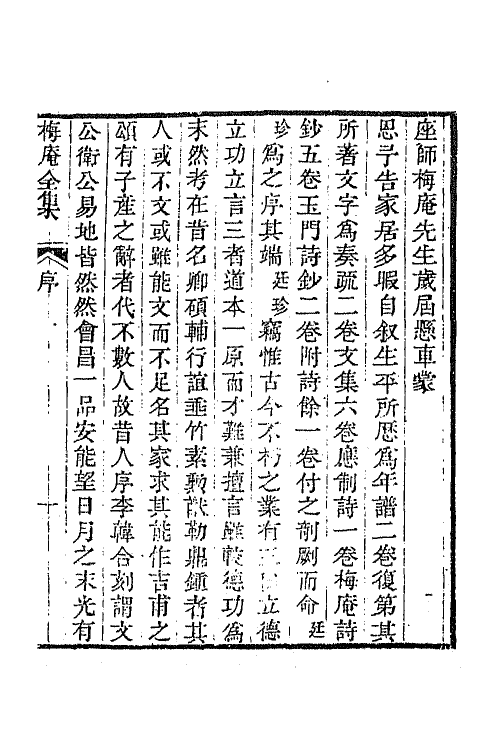 座師梅庵先生歲屆懸車蒙
恩予告家居多暇自叙生平所歷爲年譜二卷復第其
所著文字爲奏疏二卷文集六卷應制詩一卷梅庵詩
鈔五卷玉門詩鈔二卷附詩餘一卷付之剞劂而命廷
珍爲之序其端廷珍竊惟古今不朽之業有三曰立德
立功立言三者道本一原而才難兼擅言雖較德功爲
末然考在昔名卿碩輔行誼垂竹素勳猷勒鼎鍾者其
人或不文或雖能文而不足名其家求其能作吉甫之
頌有子産之辭者代不數人故昔人序李韓合刻謂文
公衛公易地皆然然會昌一品安能望日月之末光有
梅庵全集 序 一